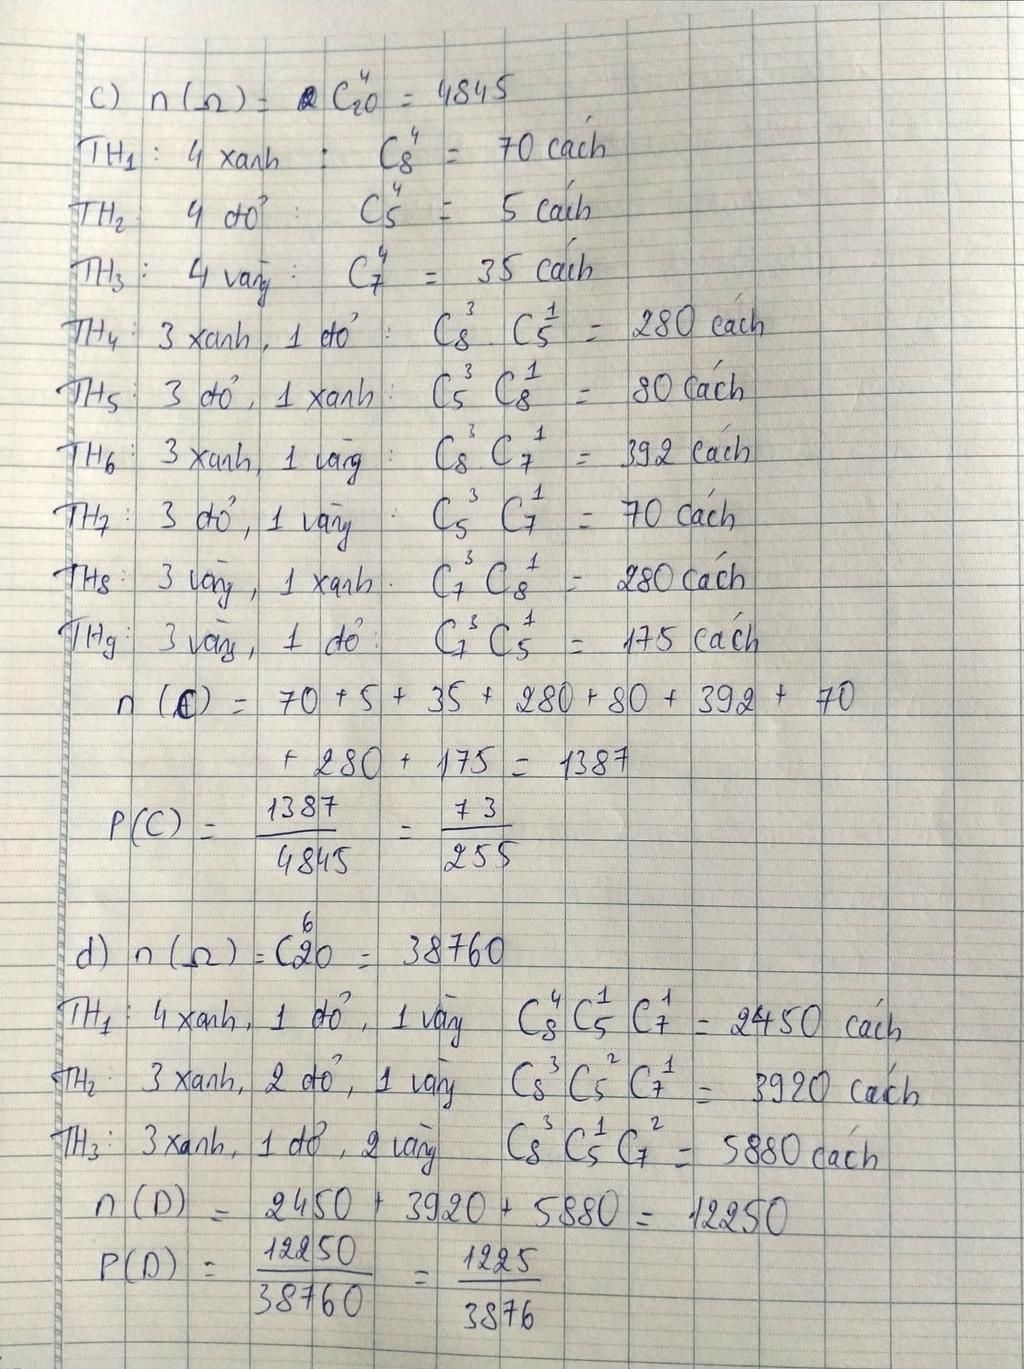 c) n(Ω) = C⁴₂₀ = 4845
TH₁ : 4 xanh : C⁴₈ = 70 cách
TH₂ 4 đỏ : C⁴₅ = 5 cách
TH₃ : 4 vàng : C⁴₇ = 35 cách
TH₄ : 3 xanh, 1 đỏ : C³₈ . C¹₅ = 280 cách
TH₅ : 3 đỏ, 1 xanh : C³₅ C¹₈ = 80 cách
TH₆ : 3 xanh, 1 vàng : C³₈ C¹₇ = 392 cách
TH₇ : 3 đỏ, 1 vàng : C³₅ C¹₇ = 70 cách
TH₈ : 3 vàng, 1 xanh . C³₇ C¹₈ = 280 cách
TH₉ : 3 vàng, 1 đỏ : C³₇ C¹₅ = 175 cách
n(C) = 70 + 5 + 35 + 280 + 80 + 392 + 70
+ 280 + 175 = 1387
P(C) = 1387/4845 = 73/255
d) n(Ω) = C⁶₂₀ = 38760
TH₁ : 4 xanh, 1 đỏ, 1 vàng C⁴₈ C¹₅ C¹₇ = 2450 cách
TH₂ : 3 xanh, 2 đỏ, 1 vàng C³₈ C²₅ C¹₇ = 3920 cách
TH₃ : 3 xanh, 1 đỏ, 2 vàng C³₈ C¹₅ C²₇ = 5880 cách
n(D) = 2450 + 3920 + 5880 = 12250
P(D) = 12250/38760 = 1225/3876